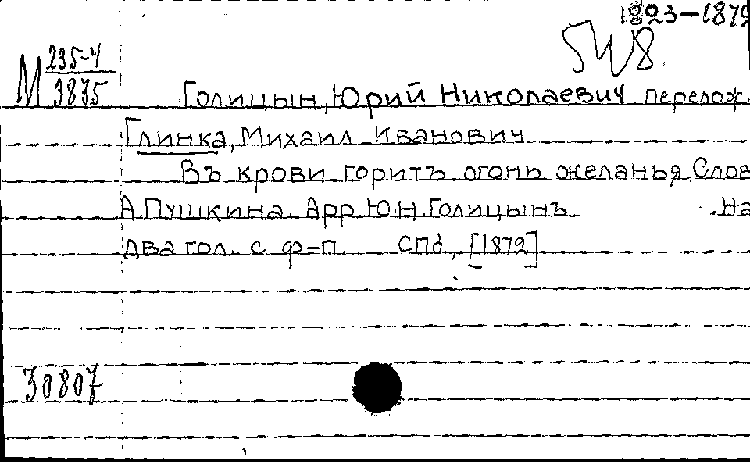 1823-1872
М 235-4
3875
Голицын, Юрий Николаевич перелож.
Глинка, Михаил Иванович
Въ крови горитъ огонь желанья Слов
А Пушкина. Арр. Ю.Н. Голицынъ. На
два гол. с ф-п СПб, [1872]
30807